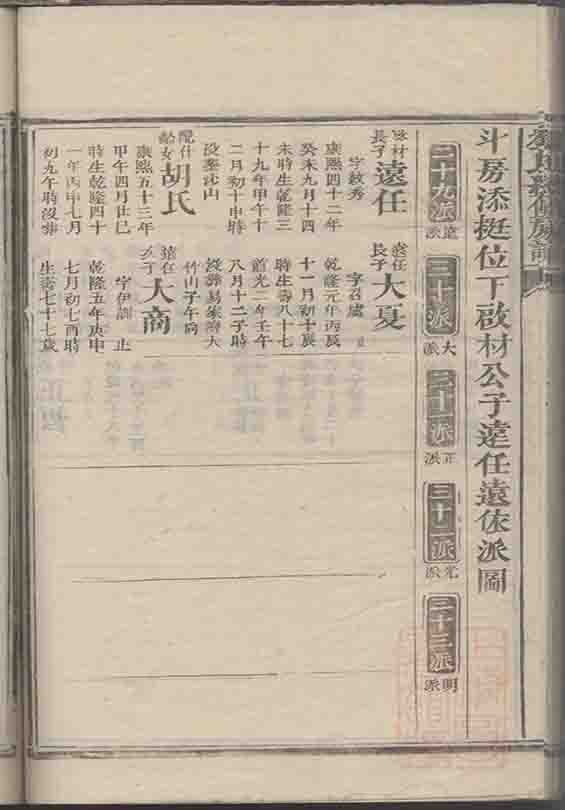 斗房添挺位下啟材公子遠任遠佐派圖
二十九派 遠派
三十派 大派
三十一派 正派
三十二派 光派
三十三派 明派
啟材長子 遠任
字紋秀
康熙四十二年
癸未九月十四
未時生乾隆三
十九年甲午十
二月初十申時
沒葬
配
胡氏
康熙五十三年
甲午四月廿巳
時生乾隆四十
一年丙申七月
初九午時沒葬
遠任長子 大夏
字召虞
乾隆元年丙辰
十一月初十辰
時生壽八十七
道光二年壬午
八月十二子時
沒葬易家灣大
竹山子午向
遠任次子 大商
字伊訓 止
乾隆五年庚申
七月初七酉時
生壽七十七歲